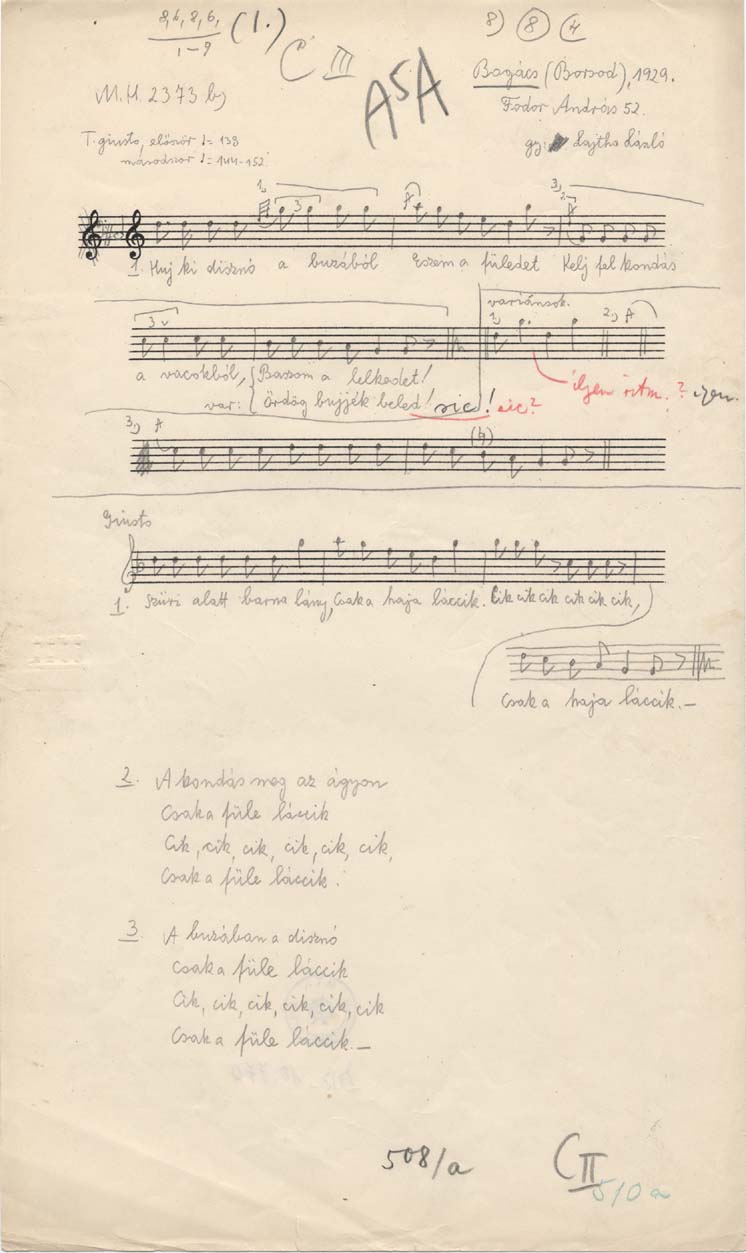 8, 6, 8, 6, (1.) 8) 8 4
1-9
C III
A⁵A
Bogács (Borsod), 1929.
M.H. 2373 b)
Fodor András 52.
T. giusto, először ♩= 138
gy: Lajtha László
másodszor ♩= 144-152
1) 3 3) 2)
1. Huj ki disznó a buzából Eszem a füledet Kelj fel kondás
3 variánsok.
1) 2)
a vacokból, Baszom a lelkedet!
var: Ördög bujjék beléd! sic! sic?
ilyen ritm.? igen.
3)
Giusto
1. Szűri alatt barna lány, Csak a haja láccik. Cik cik cik cik cik cik,
Csak a haja láccik. —
2. A kondás meg az ágyon
Csak a füle láccik
Cik, cik, cik, cik, cik, cik,
Csak a füle láccik.
3. A buzában a disznó
Csak a füle láccik
Cik, cik, cik, cik, cik, cik
Csak a füle láccik. —
508/a
C II
510a